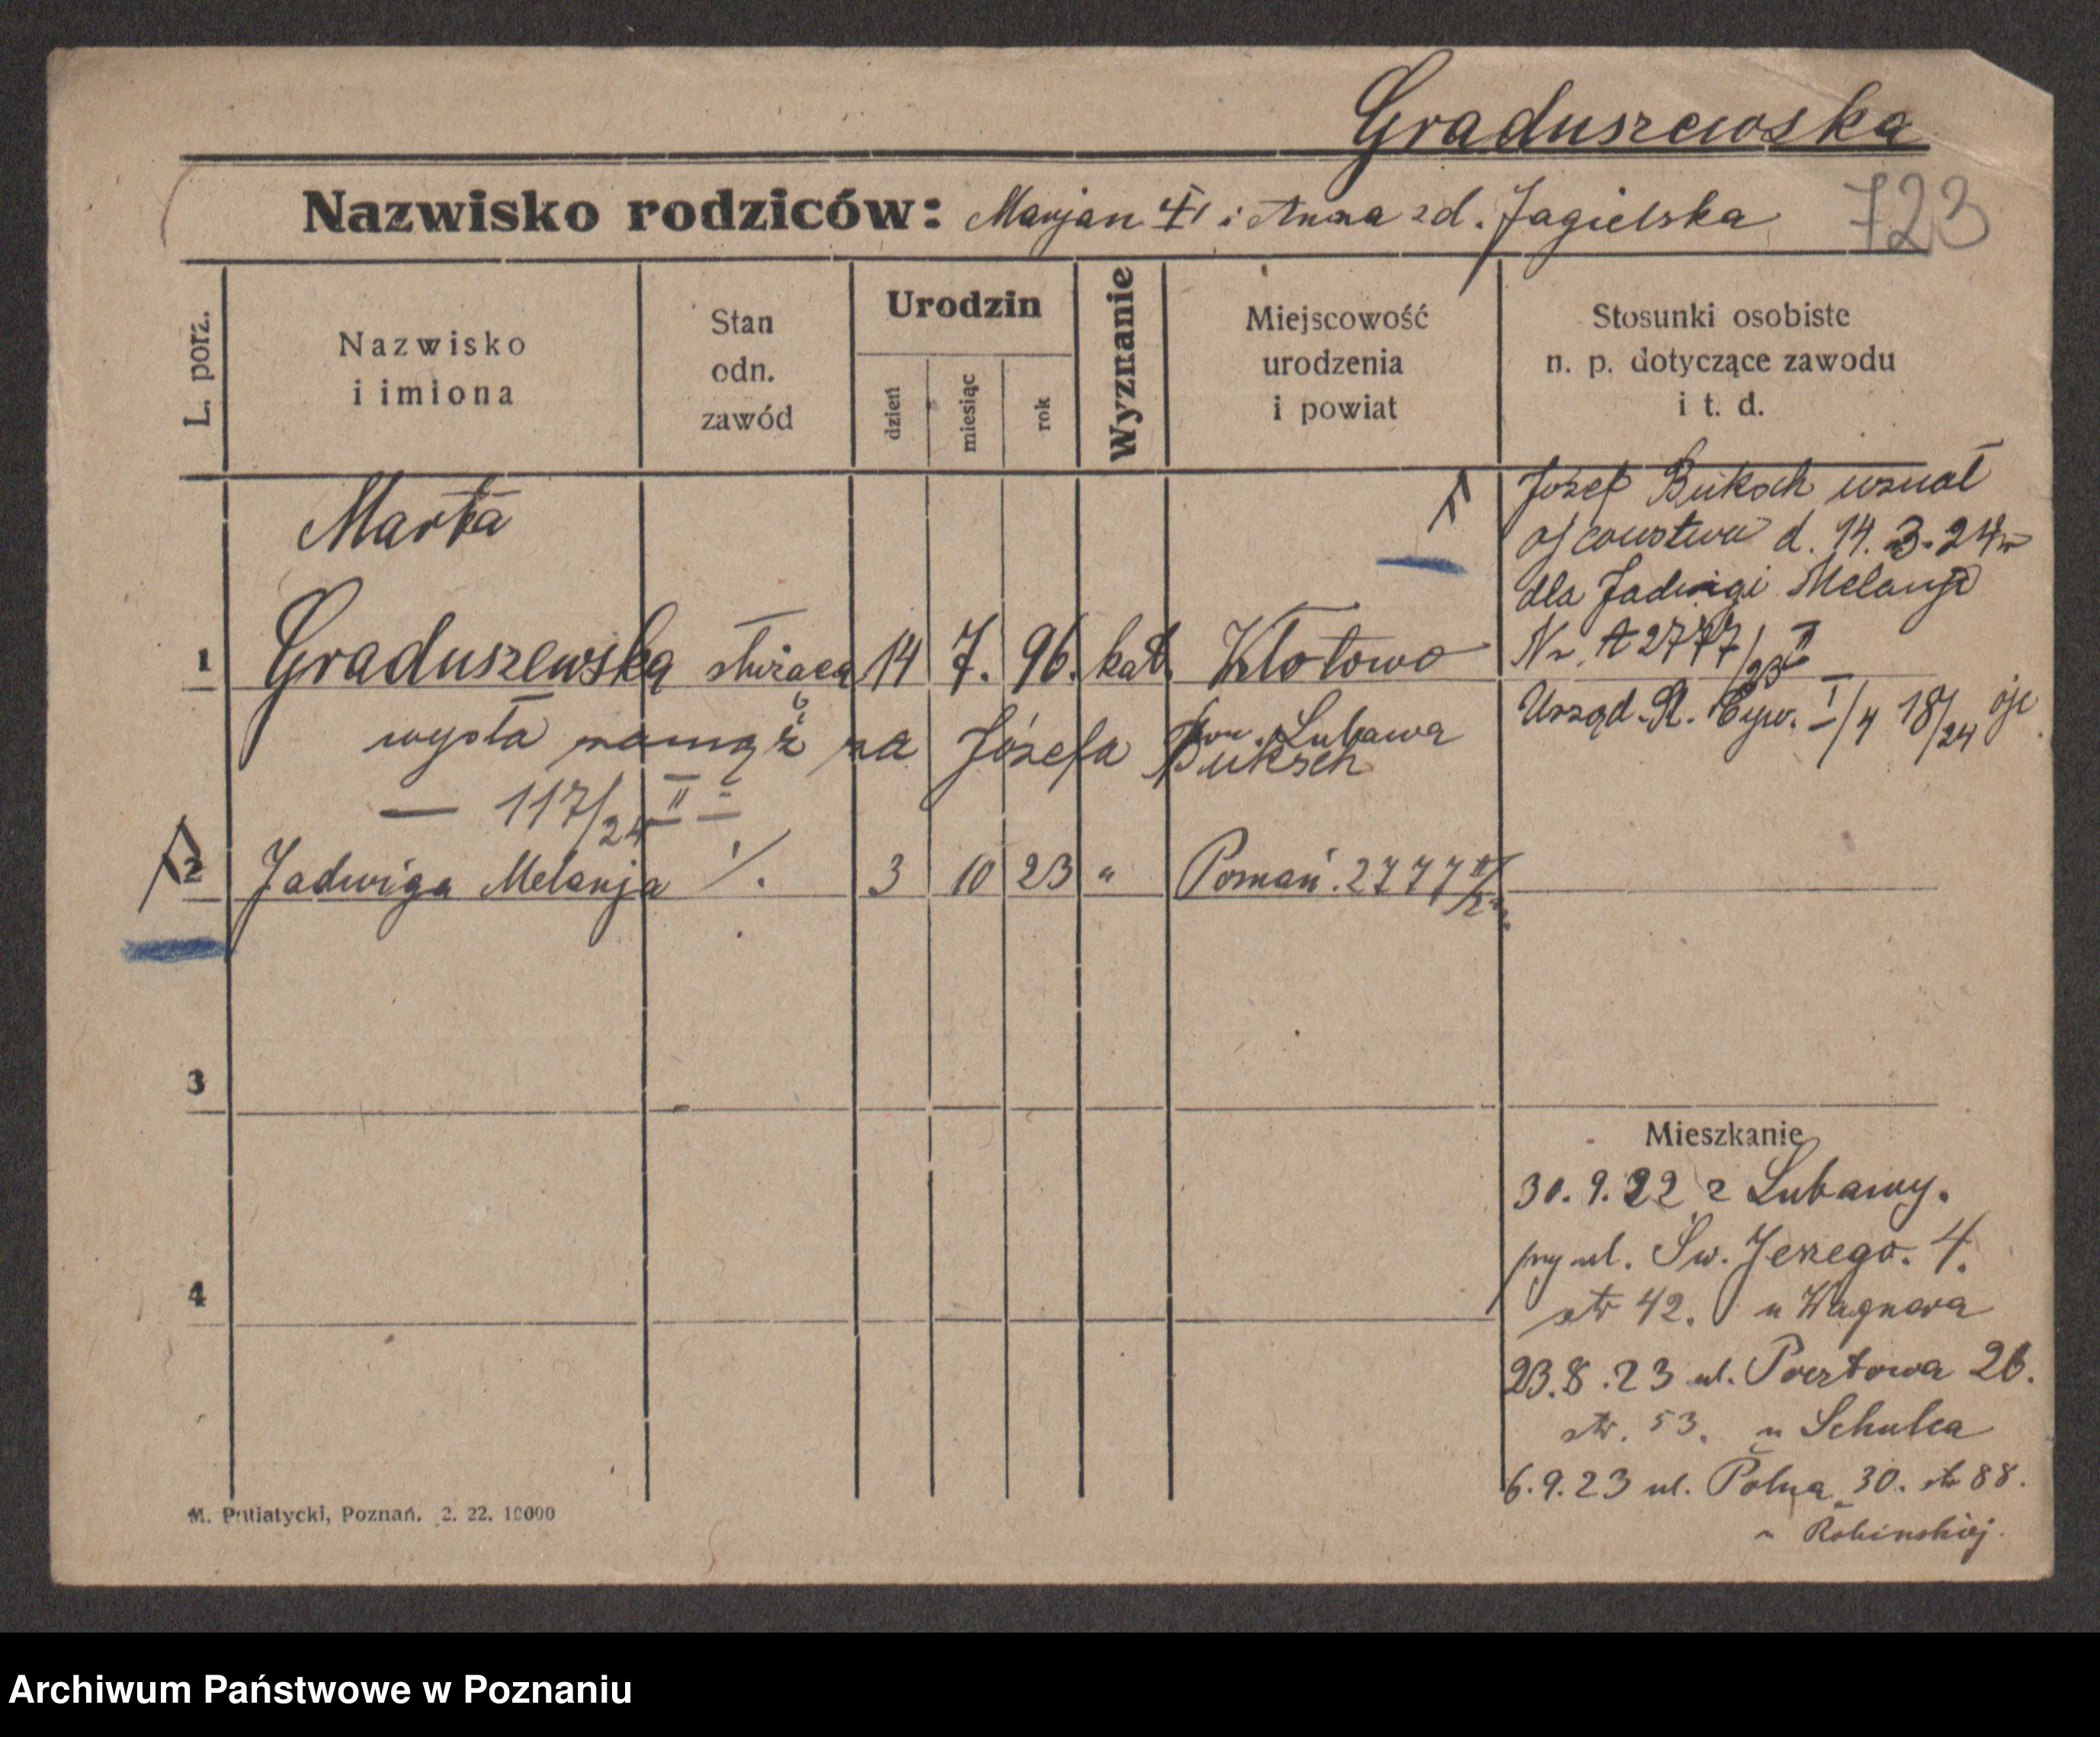 Graduszewska
Nazwisko rodziców: Marjan i Anna zd. Jagielska
723
L. porz.
Nazwisko
i imiona
Stan
odn.
zawód
Urodzin
dzień
miesiąc
rok
Wyznanie
Miejscowość
urodzenia
i powiat
Stosunki osobiste
n. p. dotyczące zawodu
i t. d.
Józef Buksch uznał
ojcowstwo d. 14. 3. 24
dla Jadwigi Melanji
Nr. A 2777/23 II
Urząd. St. Cyw. I/4 18/24
Marta
1 Graduszewska służąca 14 7. 96. kat. Kłotowo
pow. Lubawa
wyszła zamąż za Józefa Buksch
— 117/24 II
2 Jadwiga Melanja ./. 3 10 23 " Poznań. 2777
3
4
Mieszkanie
30. 9. 22 z Lubawy.
przy ul. Św. Jerzego. 4.
str 42. u Wagnera
23. 8. 23 ul. Pocztowa 26.
str. 53. u Schulca
6. 9. 23 ul. Polna 30. str 88.
u Robinskiej.
M. Putiatycki, Poznań. 2. 22. 10000
Archiwum Państwowe w Poznaniu